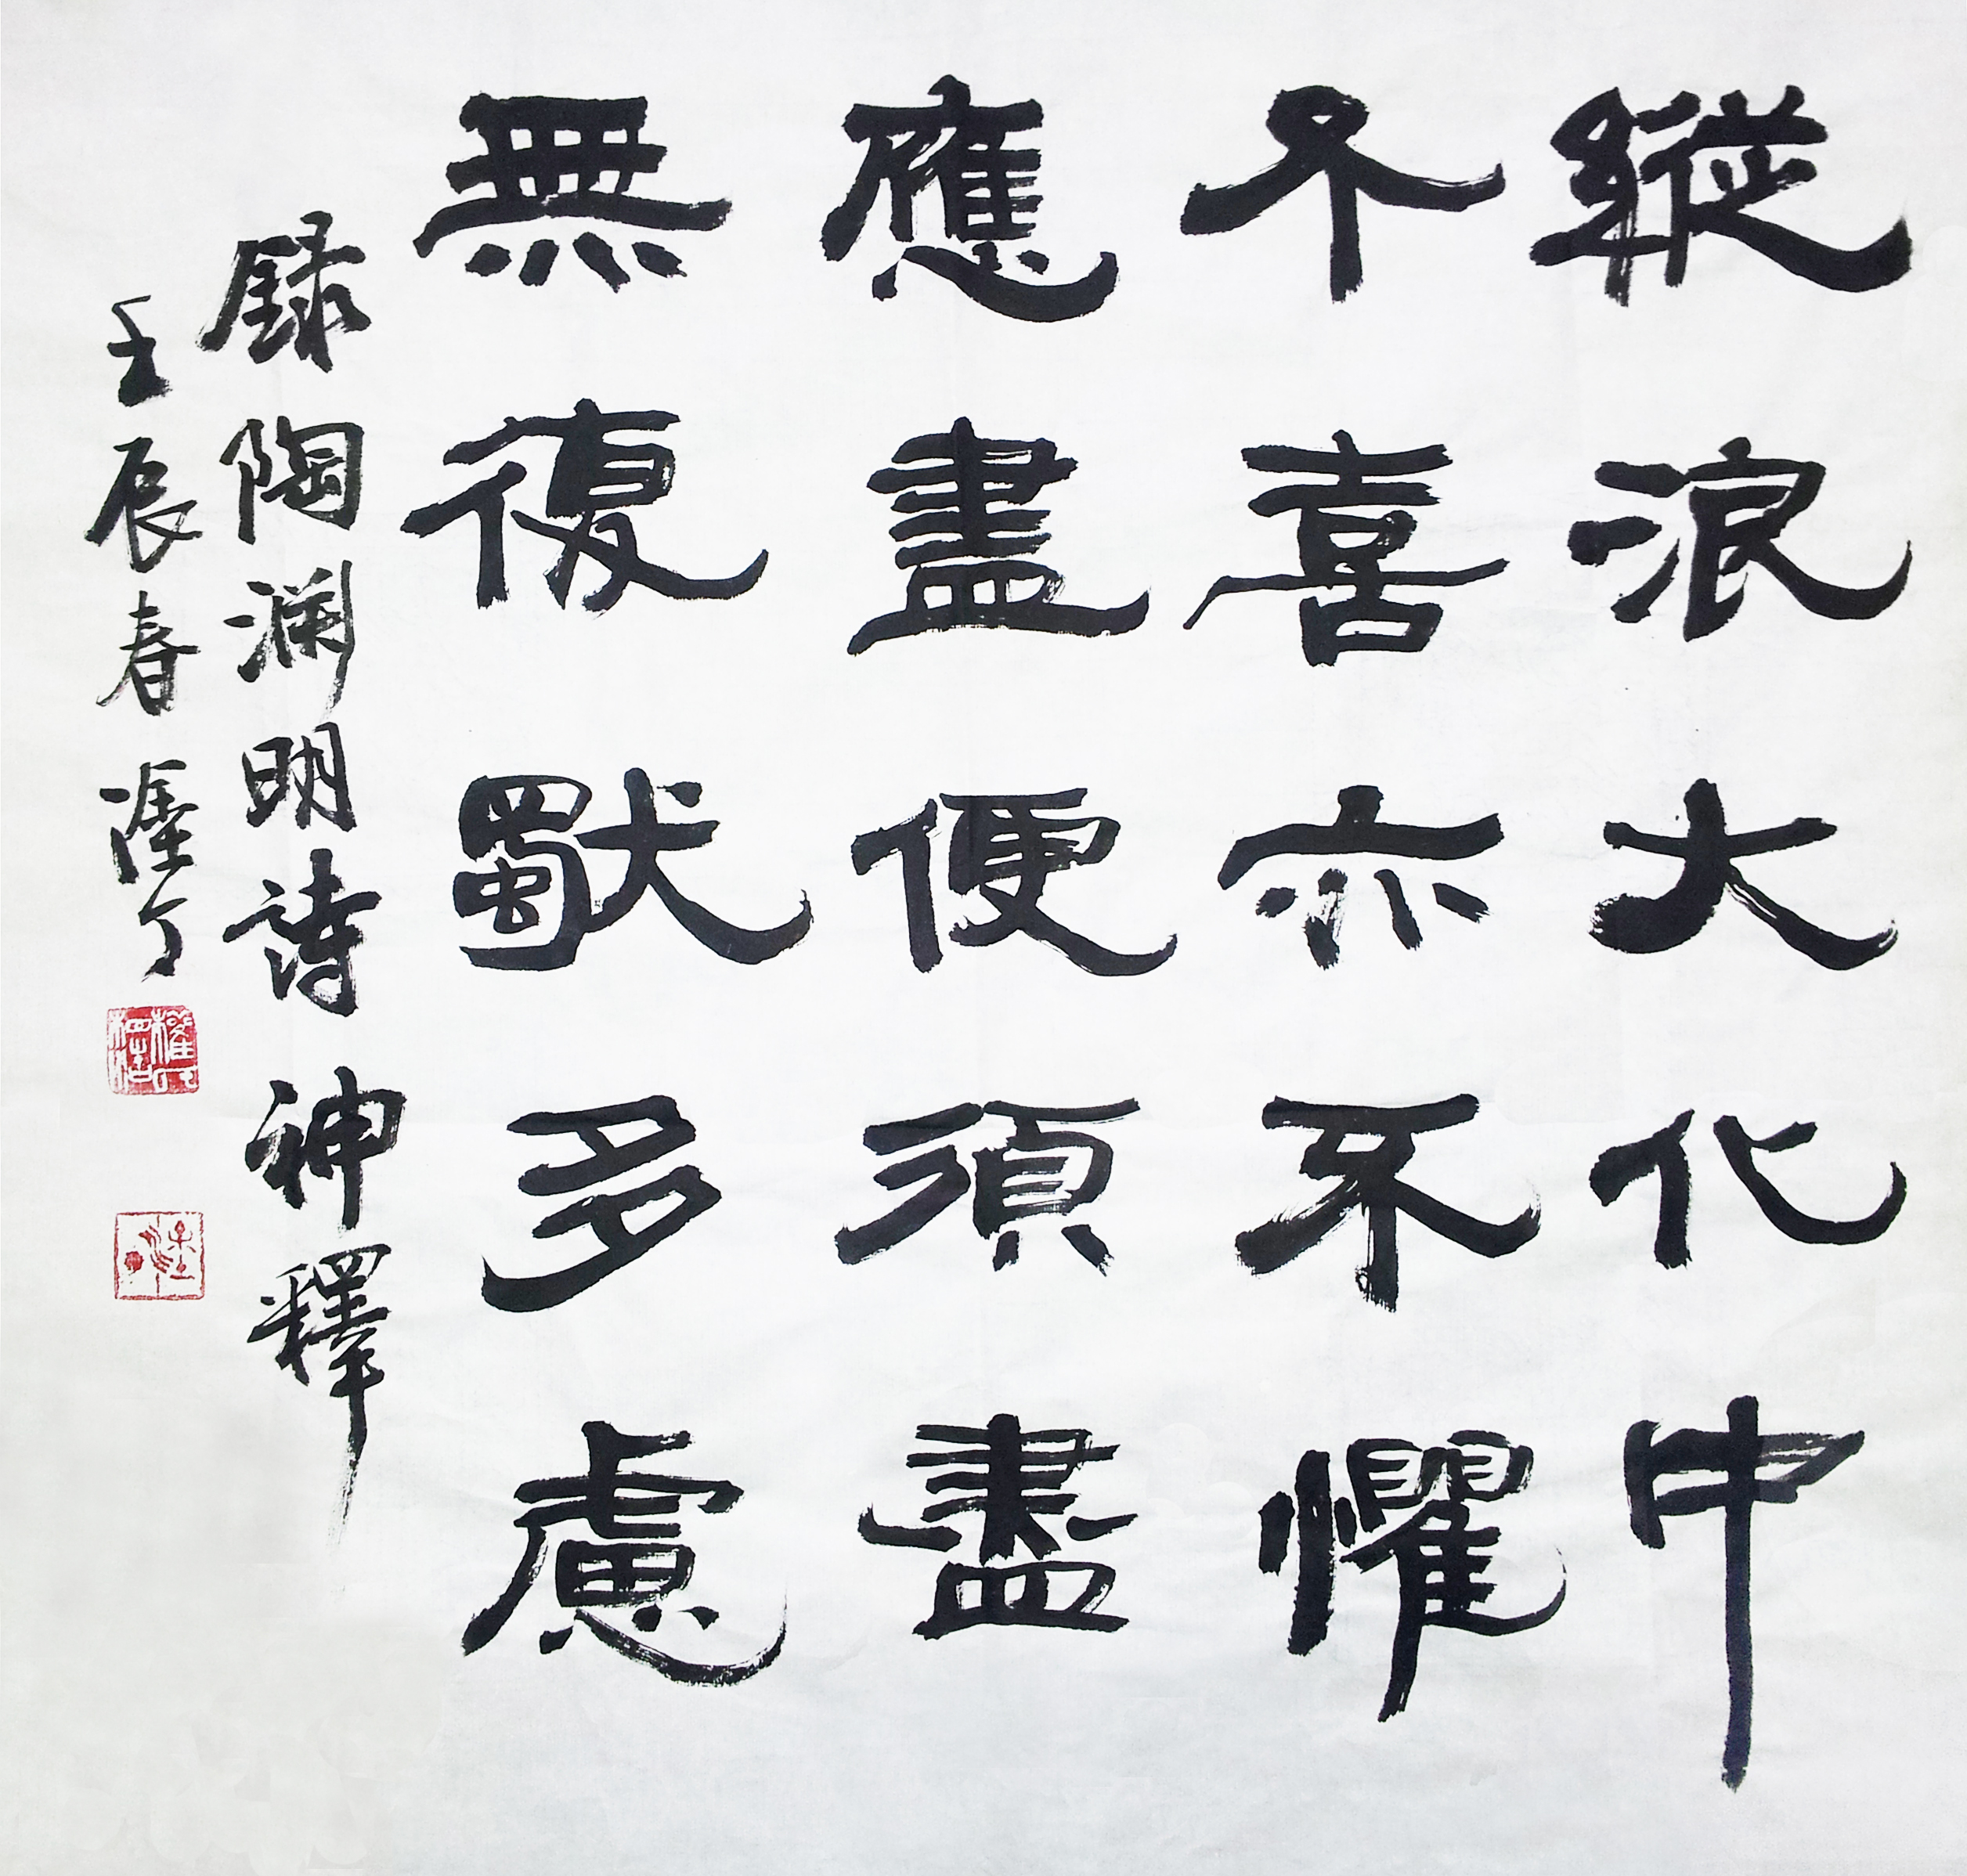 縱浪大化中
不喜亦不懼
應盡便須盡
無復獨多慮
録陶渊明詩神釋
壬辰春